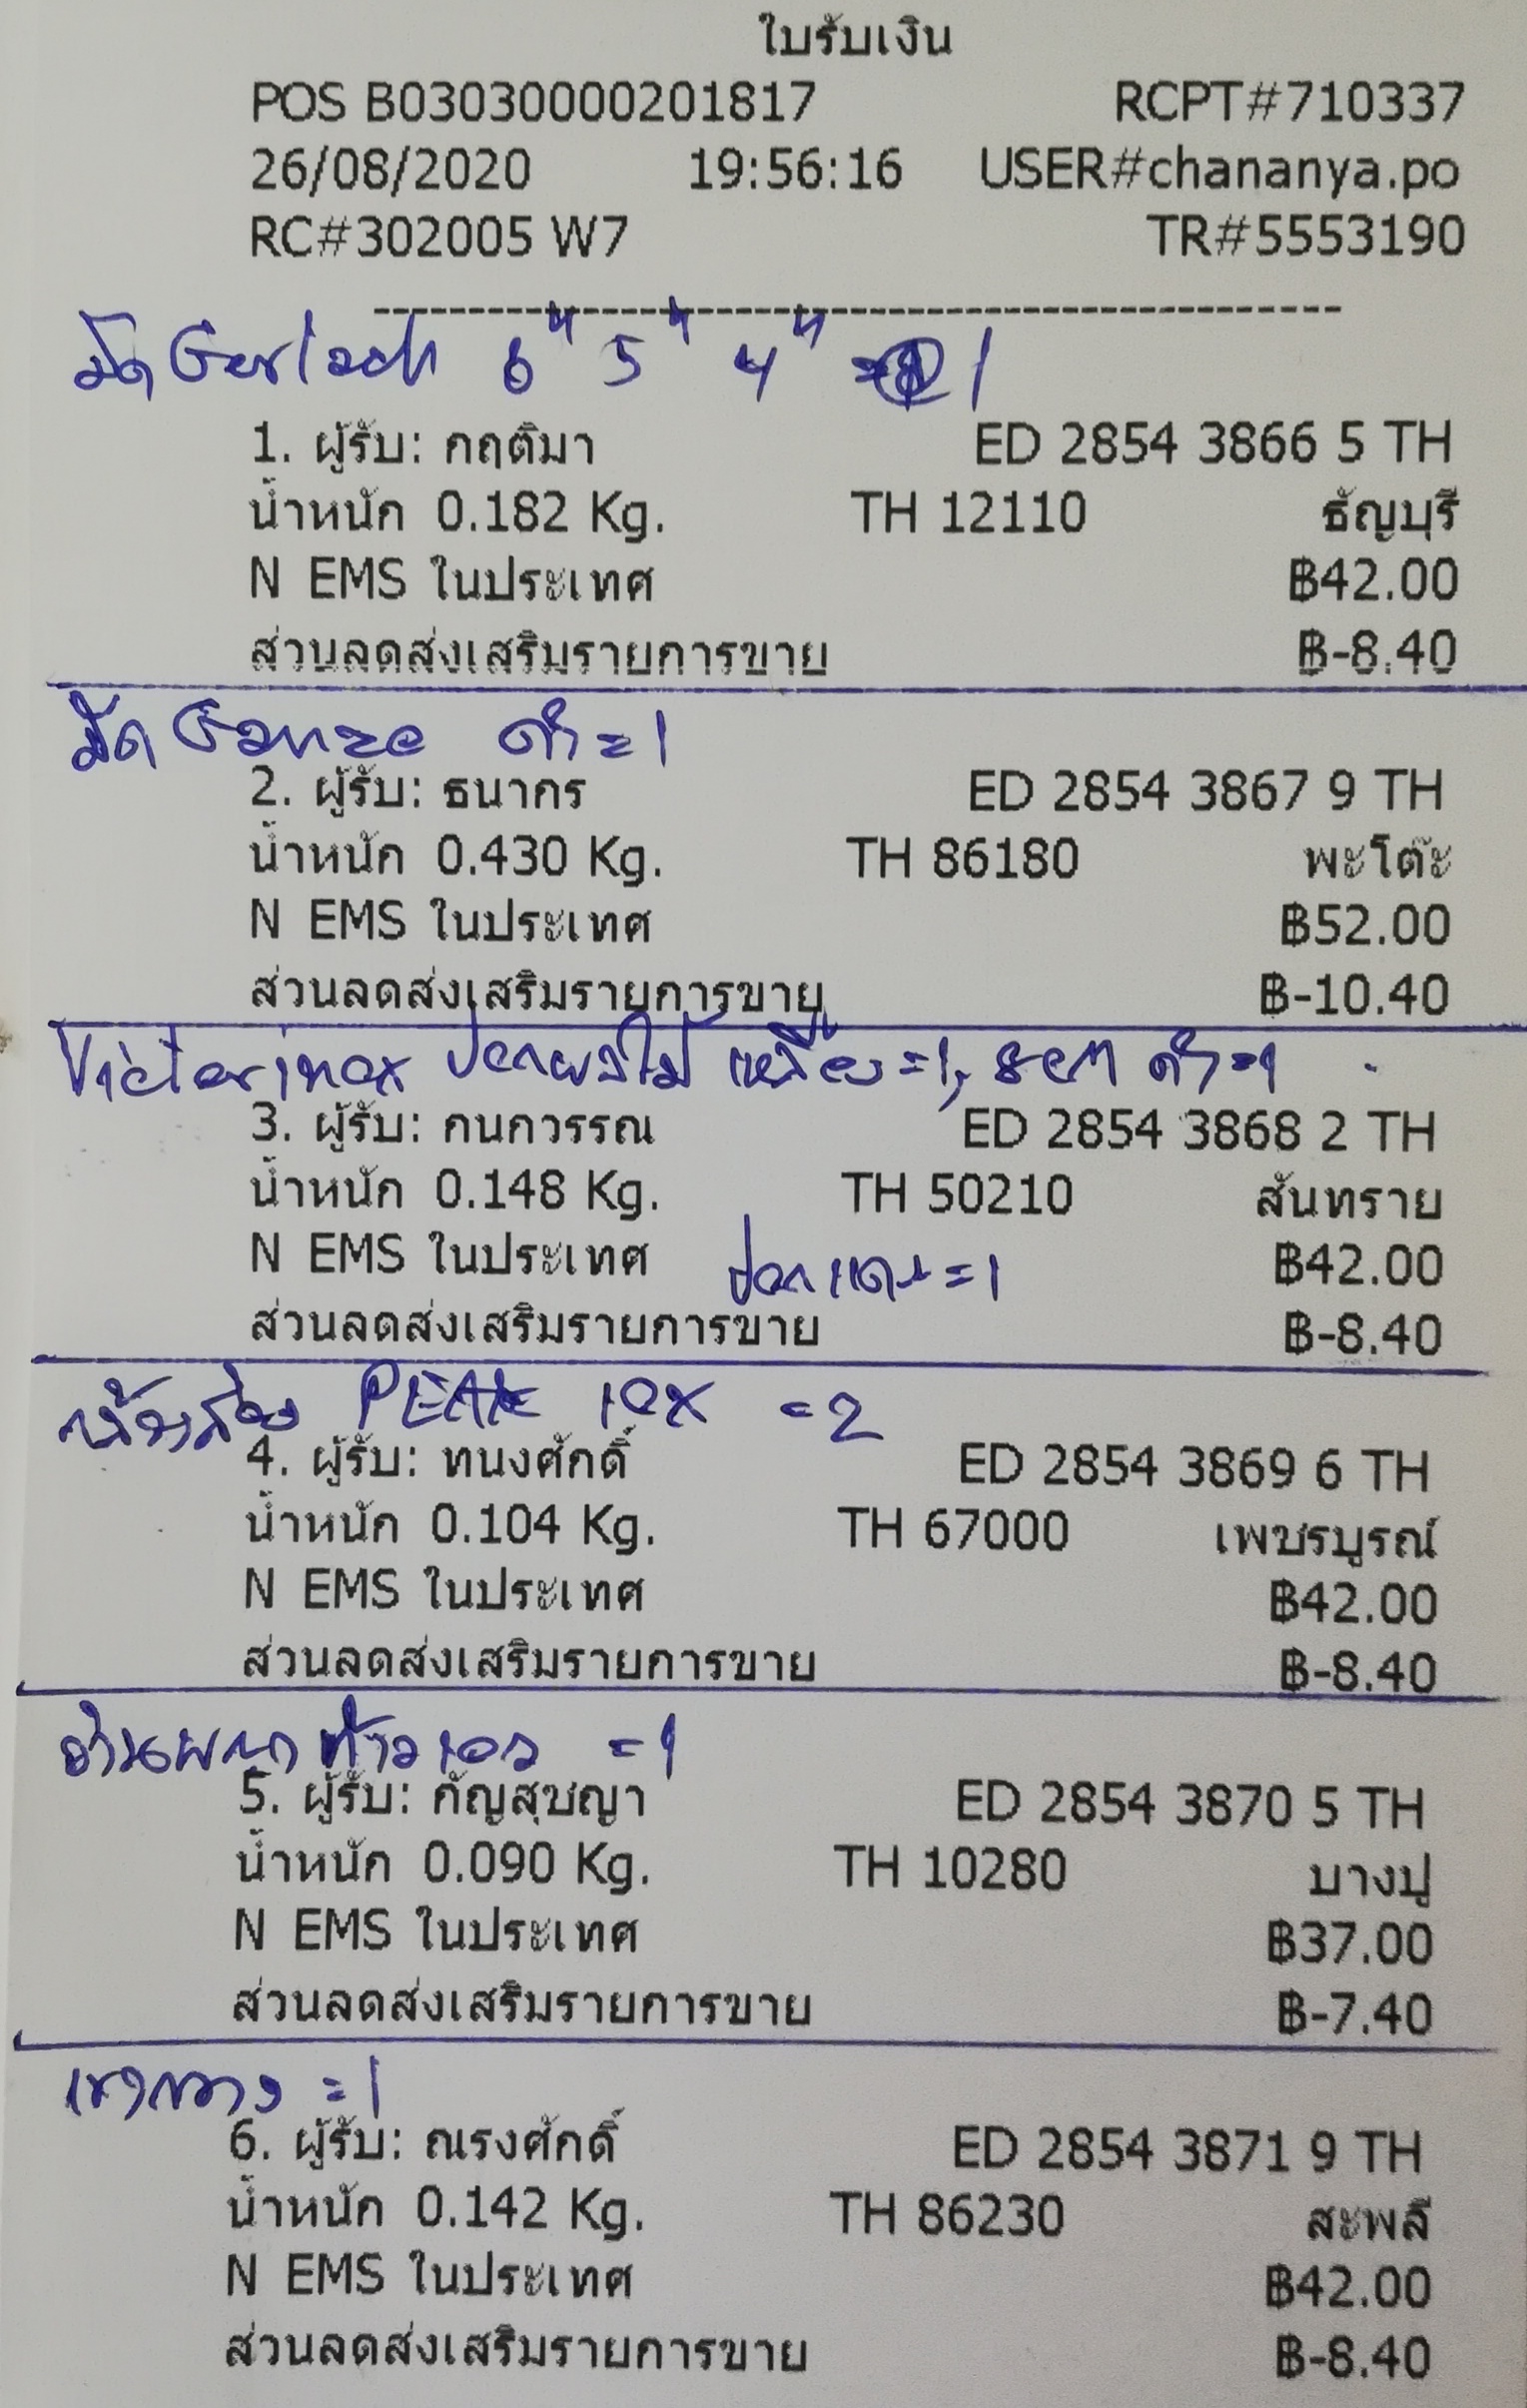 ใบรับเงิน
POS B03030000201817 RCPT#710337
26/08/2020 19:56:16 USER#chananya.po
RC#302005 W7 TR#5553190
มีด Gerlach 6" 5" 4" = 1
1. ผู้รับ: กฤติมา ED 2854 3866 5 TH
น้ำหนัก 0.182 Kg. TH 12110 ธัญบุรี
N EMS ในประเทศ ฿42.00
ส่วนลดส่งเสริมรายการขาย ฿-8.40
มีด Ganzo ดำ = 1
2. ผู้รับ: ธนากร ED 2854 3867 9 TH
น้ำหนัก 0.430 Kg. TH 86180 พะโต๊ะ
N EMS ในประเทศ ฿52.00
ส่วนลดส่งเสริมรายการขาย ฿-10.40
Victorinox ปอกผลไม้ เหลือง = 1, 8cm ดำ = 1
3. ผู้รับ: กนกวรรณ ED 2854 3868 2 TH
น้ำหนัก 0.148 Kg. TH 50210 สันทราย
N EMS ในประเทศ ปอก แดง = 1 ฿42.00
ส่วนลดส่งเสริมรายการขาย ฿-8.40
กล้องส่อง PEAK 10X = 2
4. ผู้รับ: ทนงศักดิ์ ED 2854 3869 6 TH
น้ำหนัก 0.104 Kg. TH 67000 เพชรบูรณ์
N EMS ในประเทศ ฿42.00
ส่วนลดส่งเสริมรายการขาย ฿-8.40
= 1
5. ผู้รับ: กัญสุชญา ED 2854 3870 5 TH
น้ำหนัก 0.090 Kg. TH 10280 บางปู
N EMS ในประเทศ ฿37.00
ส่วนลดส่งเสริมรายการขาย ฿-7.40
= 1
6. ผู้รับ: ณรงศักดิ์ ED 2854 3871 9 TH
น้ำหนัก 0.142 Kg. TH 86230 สะพลี
N EMS ในประเทศ ฿42.00
ส่วนลดส่งเสริมรายการขาย ฿-8.40